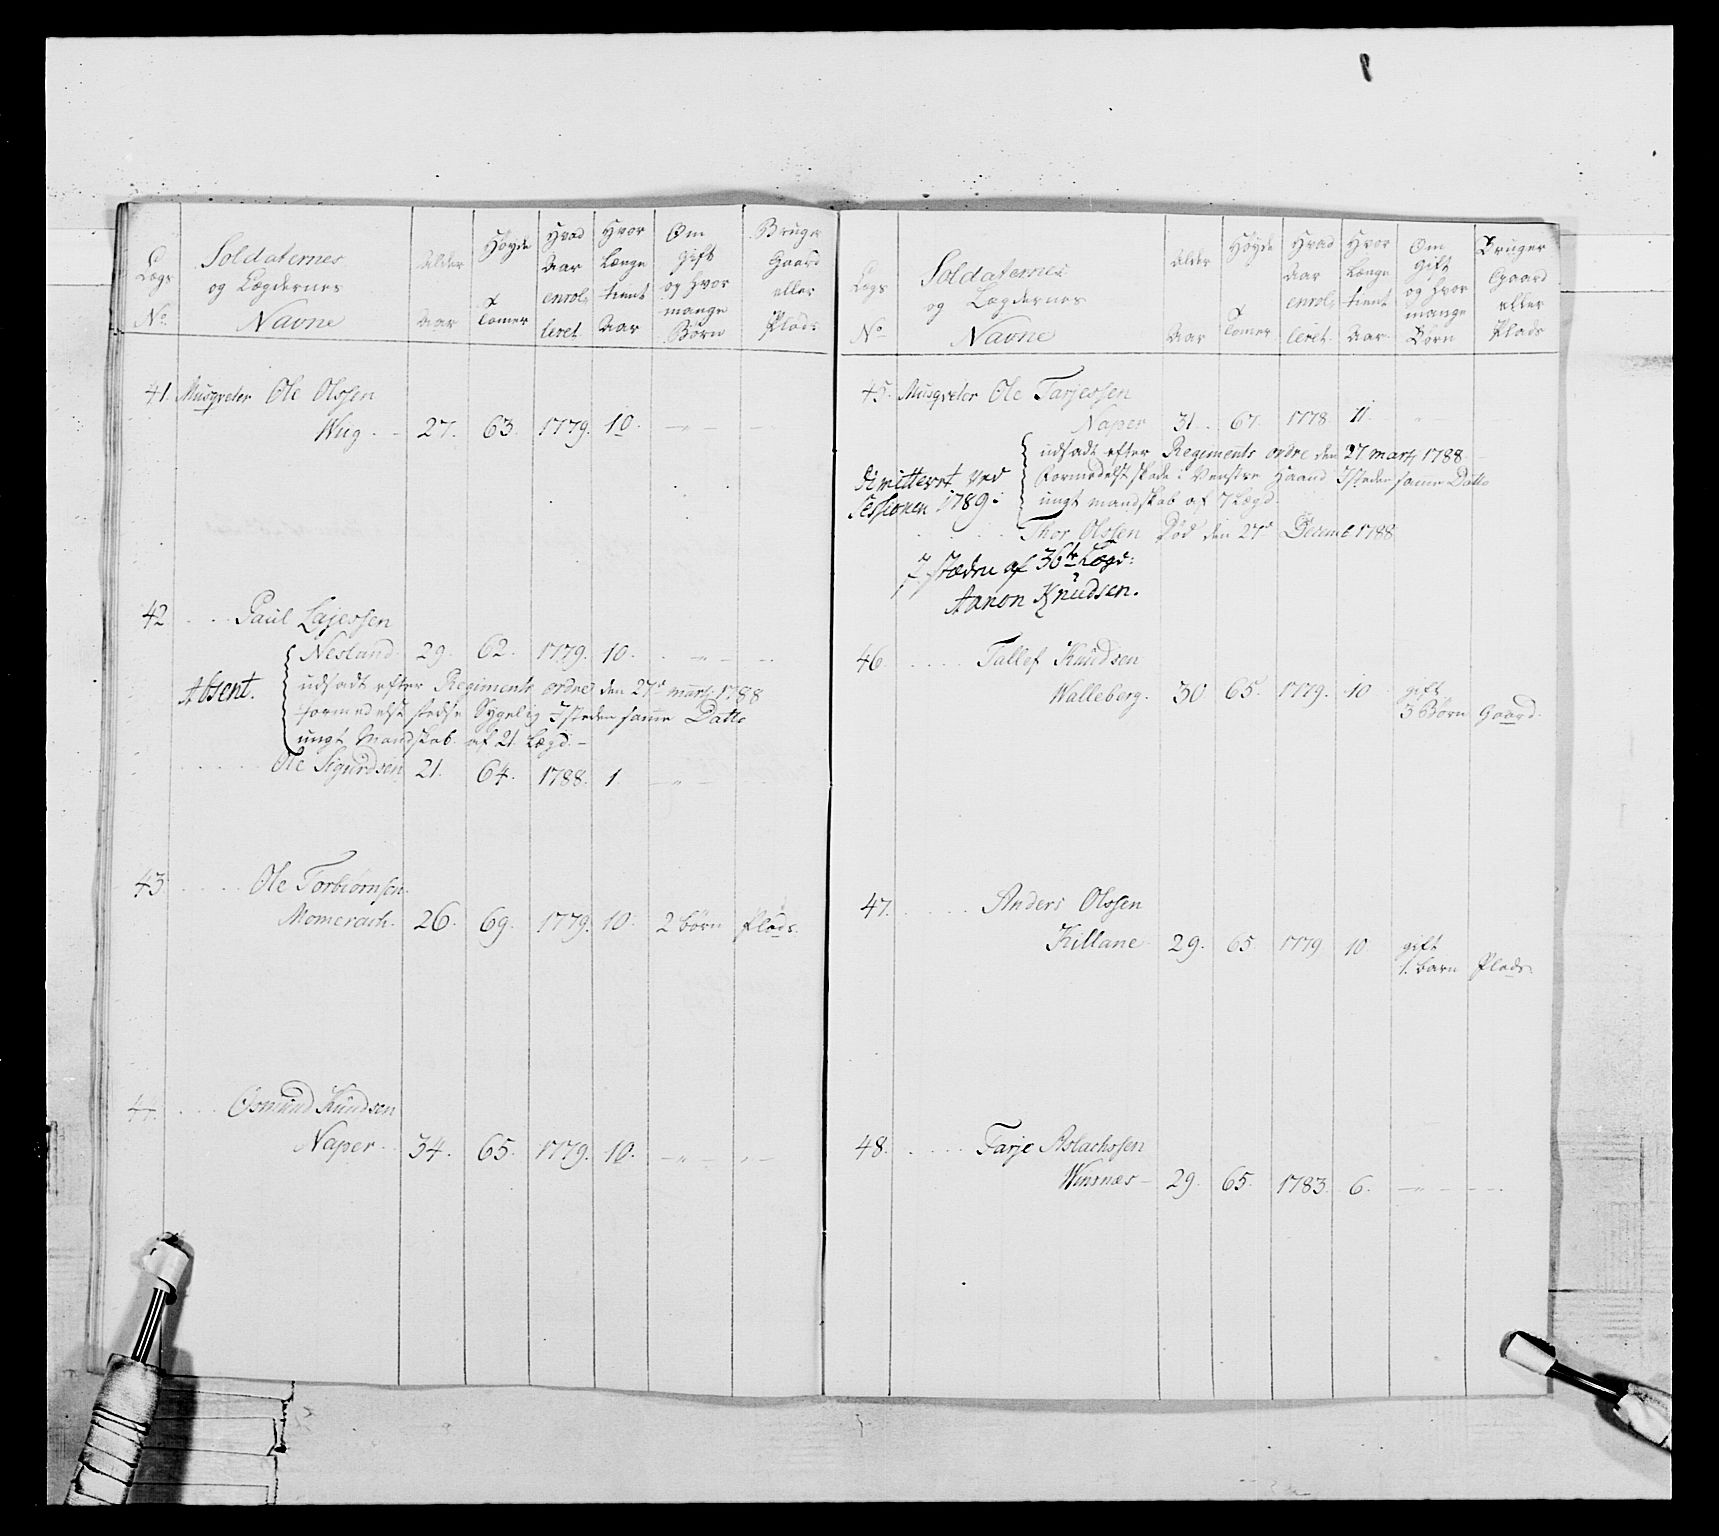 Lægs
No.
Soldaternes
og Lægdernes
Navne
Alder
Aar
Høyde
Tomer
Hvad
Aar
enrol-
leret
Hvor
Længe
tient
Aar
Om
gift
og hvor
mange
Børn
Bruger
Gaard
eller
Plads
41. Musqveter Ole Olssen
Wug. 27. 63. 1779. 10. — " — — " —
42 Paul Lajessen
Nesland. 29. 62. 1779. 10. — " —
Absent.
udsadt efter Regiments ordre den 27de marts 1788
formedelst stedse Sygelig Isteden samme Datto
ungt Mandskab af 21. Lægd. —
Ole Sigurdsen 21. 64. 1788. 1. — " —
43 Ole Torbiørnsen.
Momerach. 26. 69. 1779. 10. 2 børn Plads.
44. Osmund Knudsen
Naper. 34. 65. 1779. 10. — " — " —
Lægs
No
Soldaternes
og Lægdernes
Navne
Alder
Aar
Høyde
Tomer
Hvad
Aar
enrol-
leret.
Hvor
Længe
tient
Aar
Om
Gift
og hvor
mange
Børn
Bruger
Gaard
eller
Plads
45. Musqveter Ole Tarjessen
Naper 31. 67. 1778. 11. "
udsadt efter Regiments ordre den 27 marts 1788 —
formedelst skade i Venstre Haand Isteden samme Datto
ungt mandskab af 7 Lægd.
Dimittert ved
Sessionen 1789:
Thor Olssen Død den 27de Decemb 1788
I stædne af 36te Lægd:
Aanon Knudsen.
46. Tallef Knudsen
Walleberg. 30 65. 1779. 10 gift
3 Børn Gaard.
47. Anders Olssen
Killane. 29. 65 1779 10 gift
1. barn Plads.
48. Tarje Aslachssen
Winsnæs — 29. 65. 1783. 6. — " — — " —